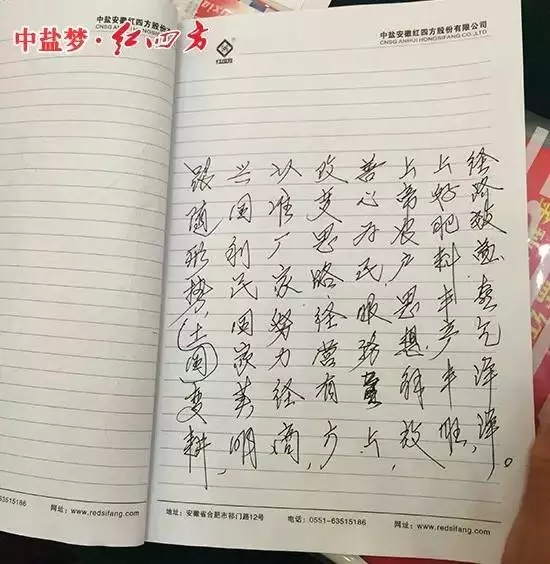 中盐梦·红四方
中盐安徽红四方股份有限公司
CNSG ANHUI HONGSIFANG CO.,LTD
红四方
跟随形势(土国)变耕,
兴国利民国家美明,
以准厂家努力经商,
改变思路经营有方,
善心为民服务
上帝农户思想
上好肥料丰产丰
经路致富喜气洋洋。
63515186 网址:www.redsifang.com
地址:安徽省合肥市祁门路12号 电话:0551-63515186 网址:www.redsifang.com